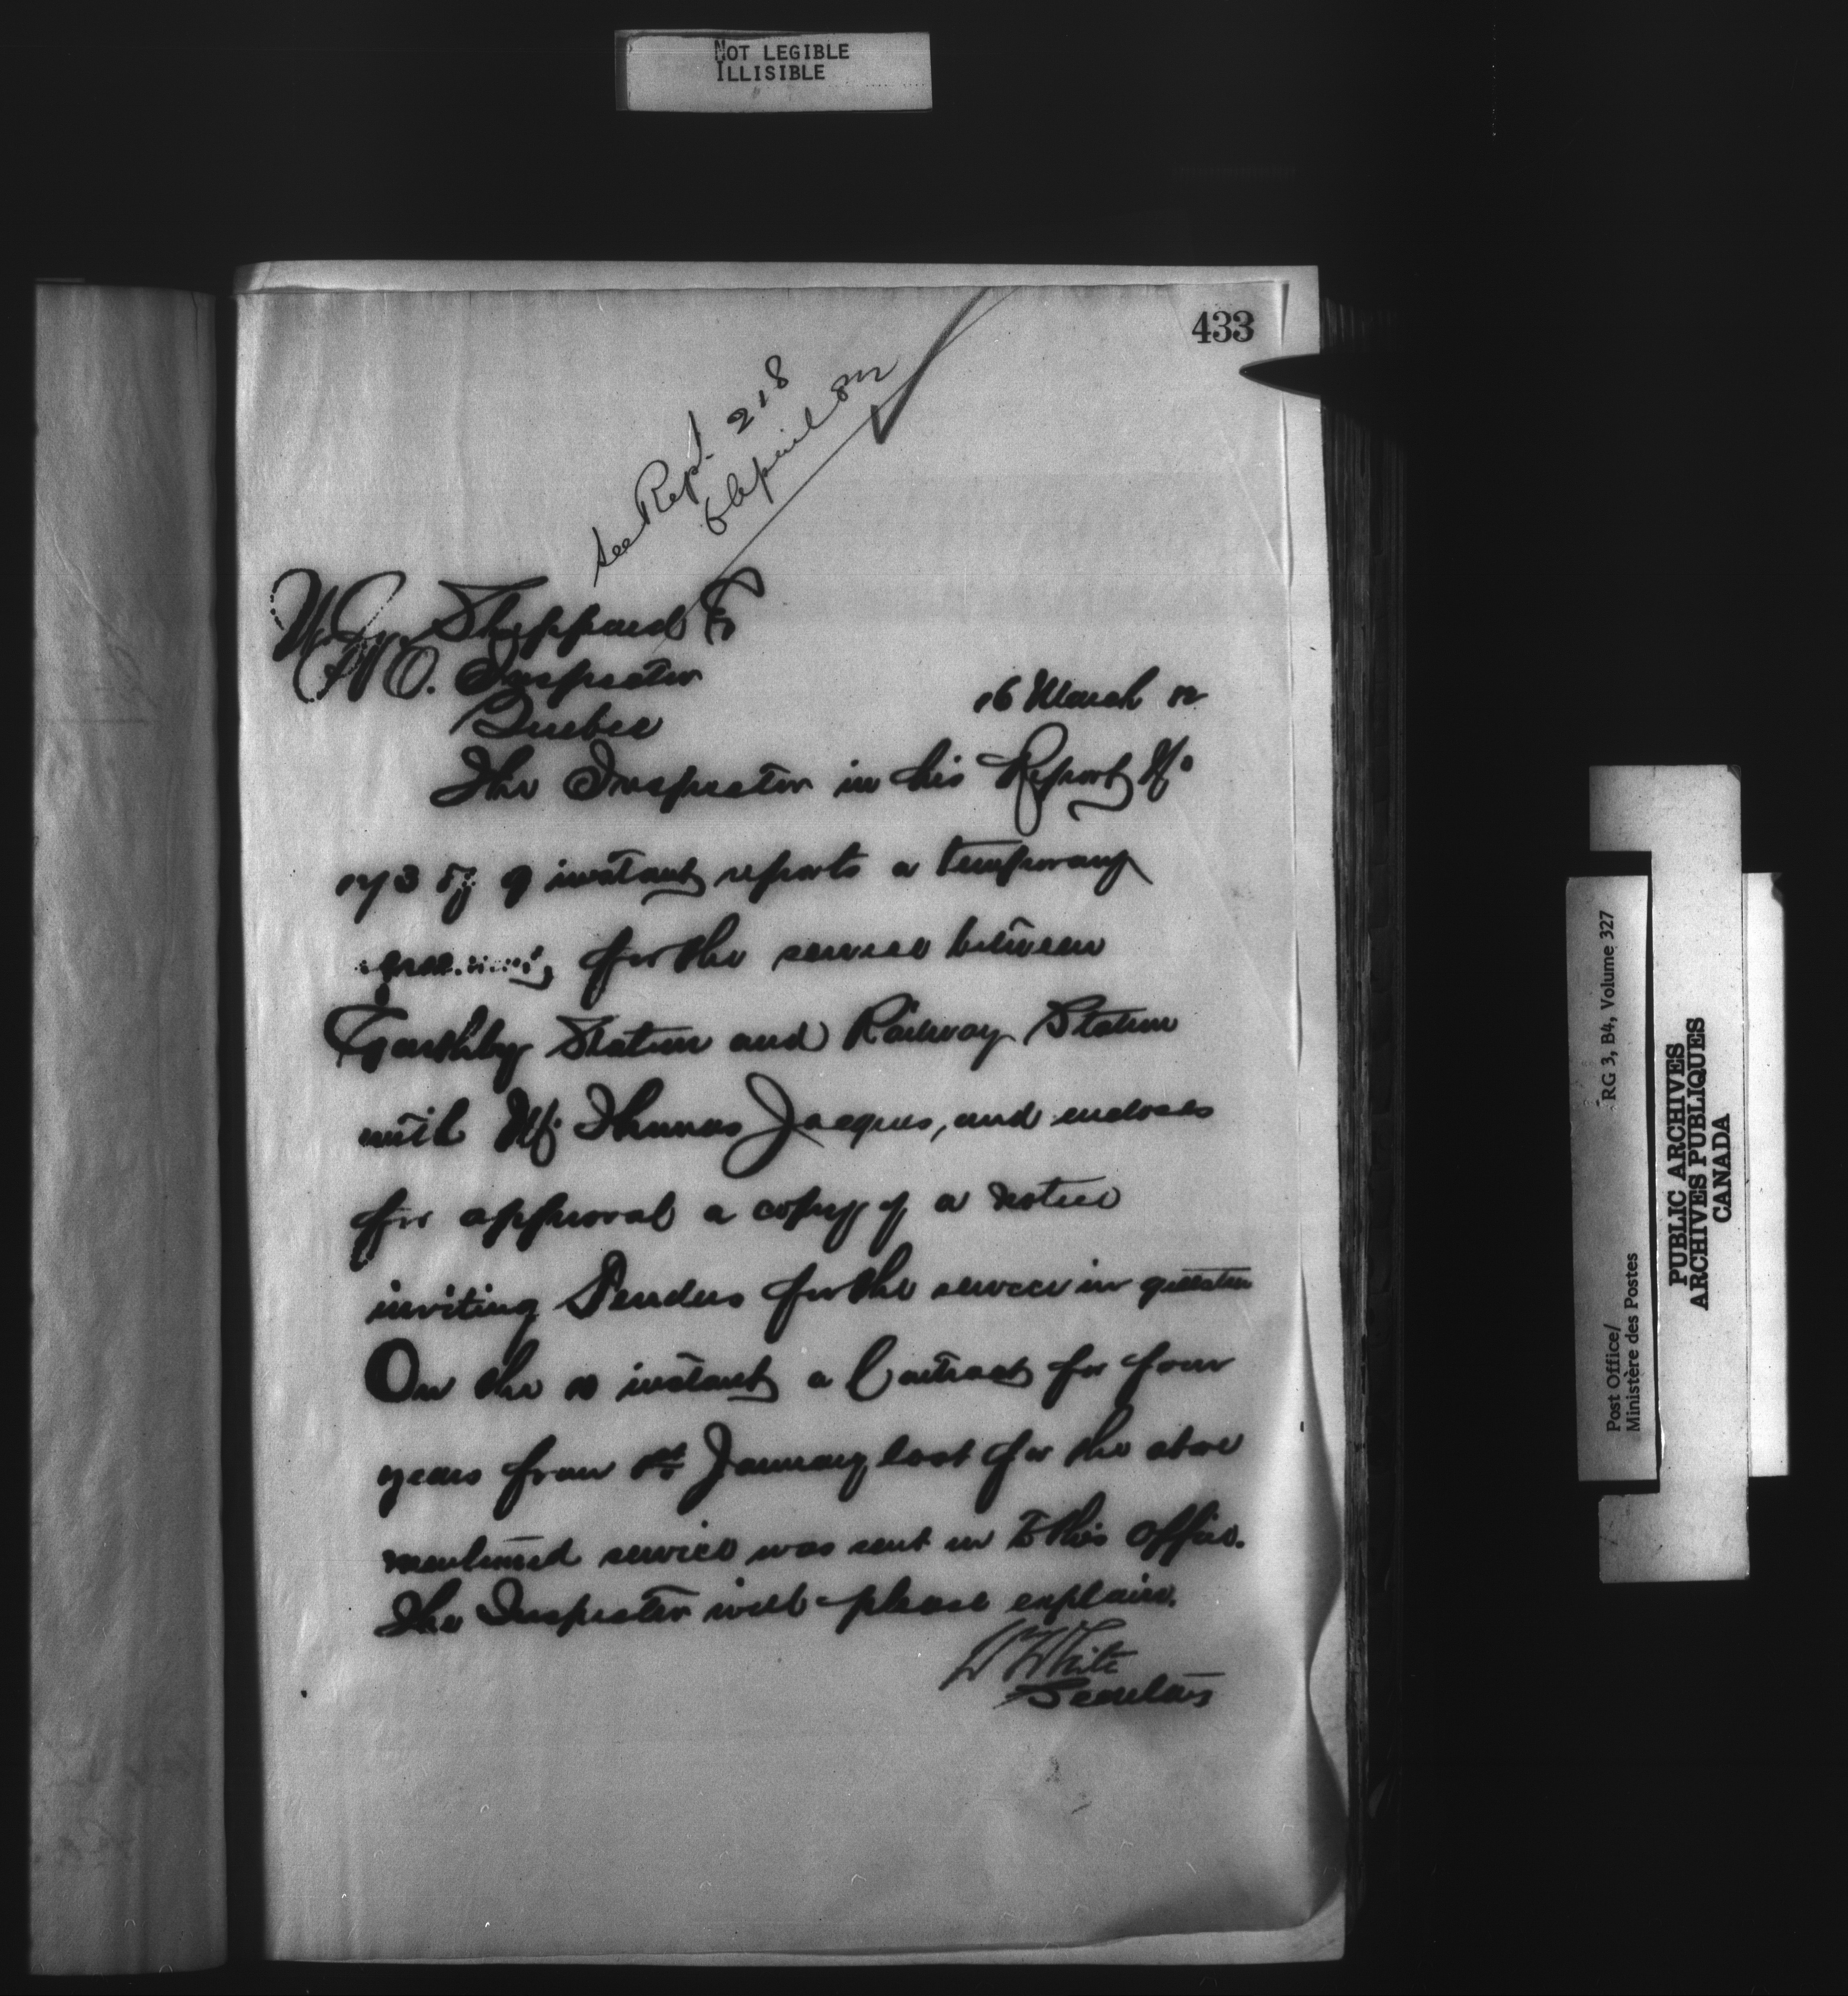 NOT LEGIBLE
ILLISIBLE
433
See Rep! 218
6 April
W. G. Sheppard E
P.O. Inspector
Quebec
16 March
The Inspector in his Report No
173 of 9 instant reports a temporary
for the service between
Garthby Station and Railway Station
with Mr. Thomas Jacques, and encloses
for approval a copy of a notice
inviting Tenders for the service in question
On the instant a Contract for four
years from 1st January last for the above
mentioned service was sent in to this office.
The Inspector will please explain.
W White
Secretary
Post Office/
Ministère des Postes
RG 3, B4, Volume 327
PUBLIC ARCHIVES
ARCHIVES PUBLIQUES
CANADA